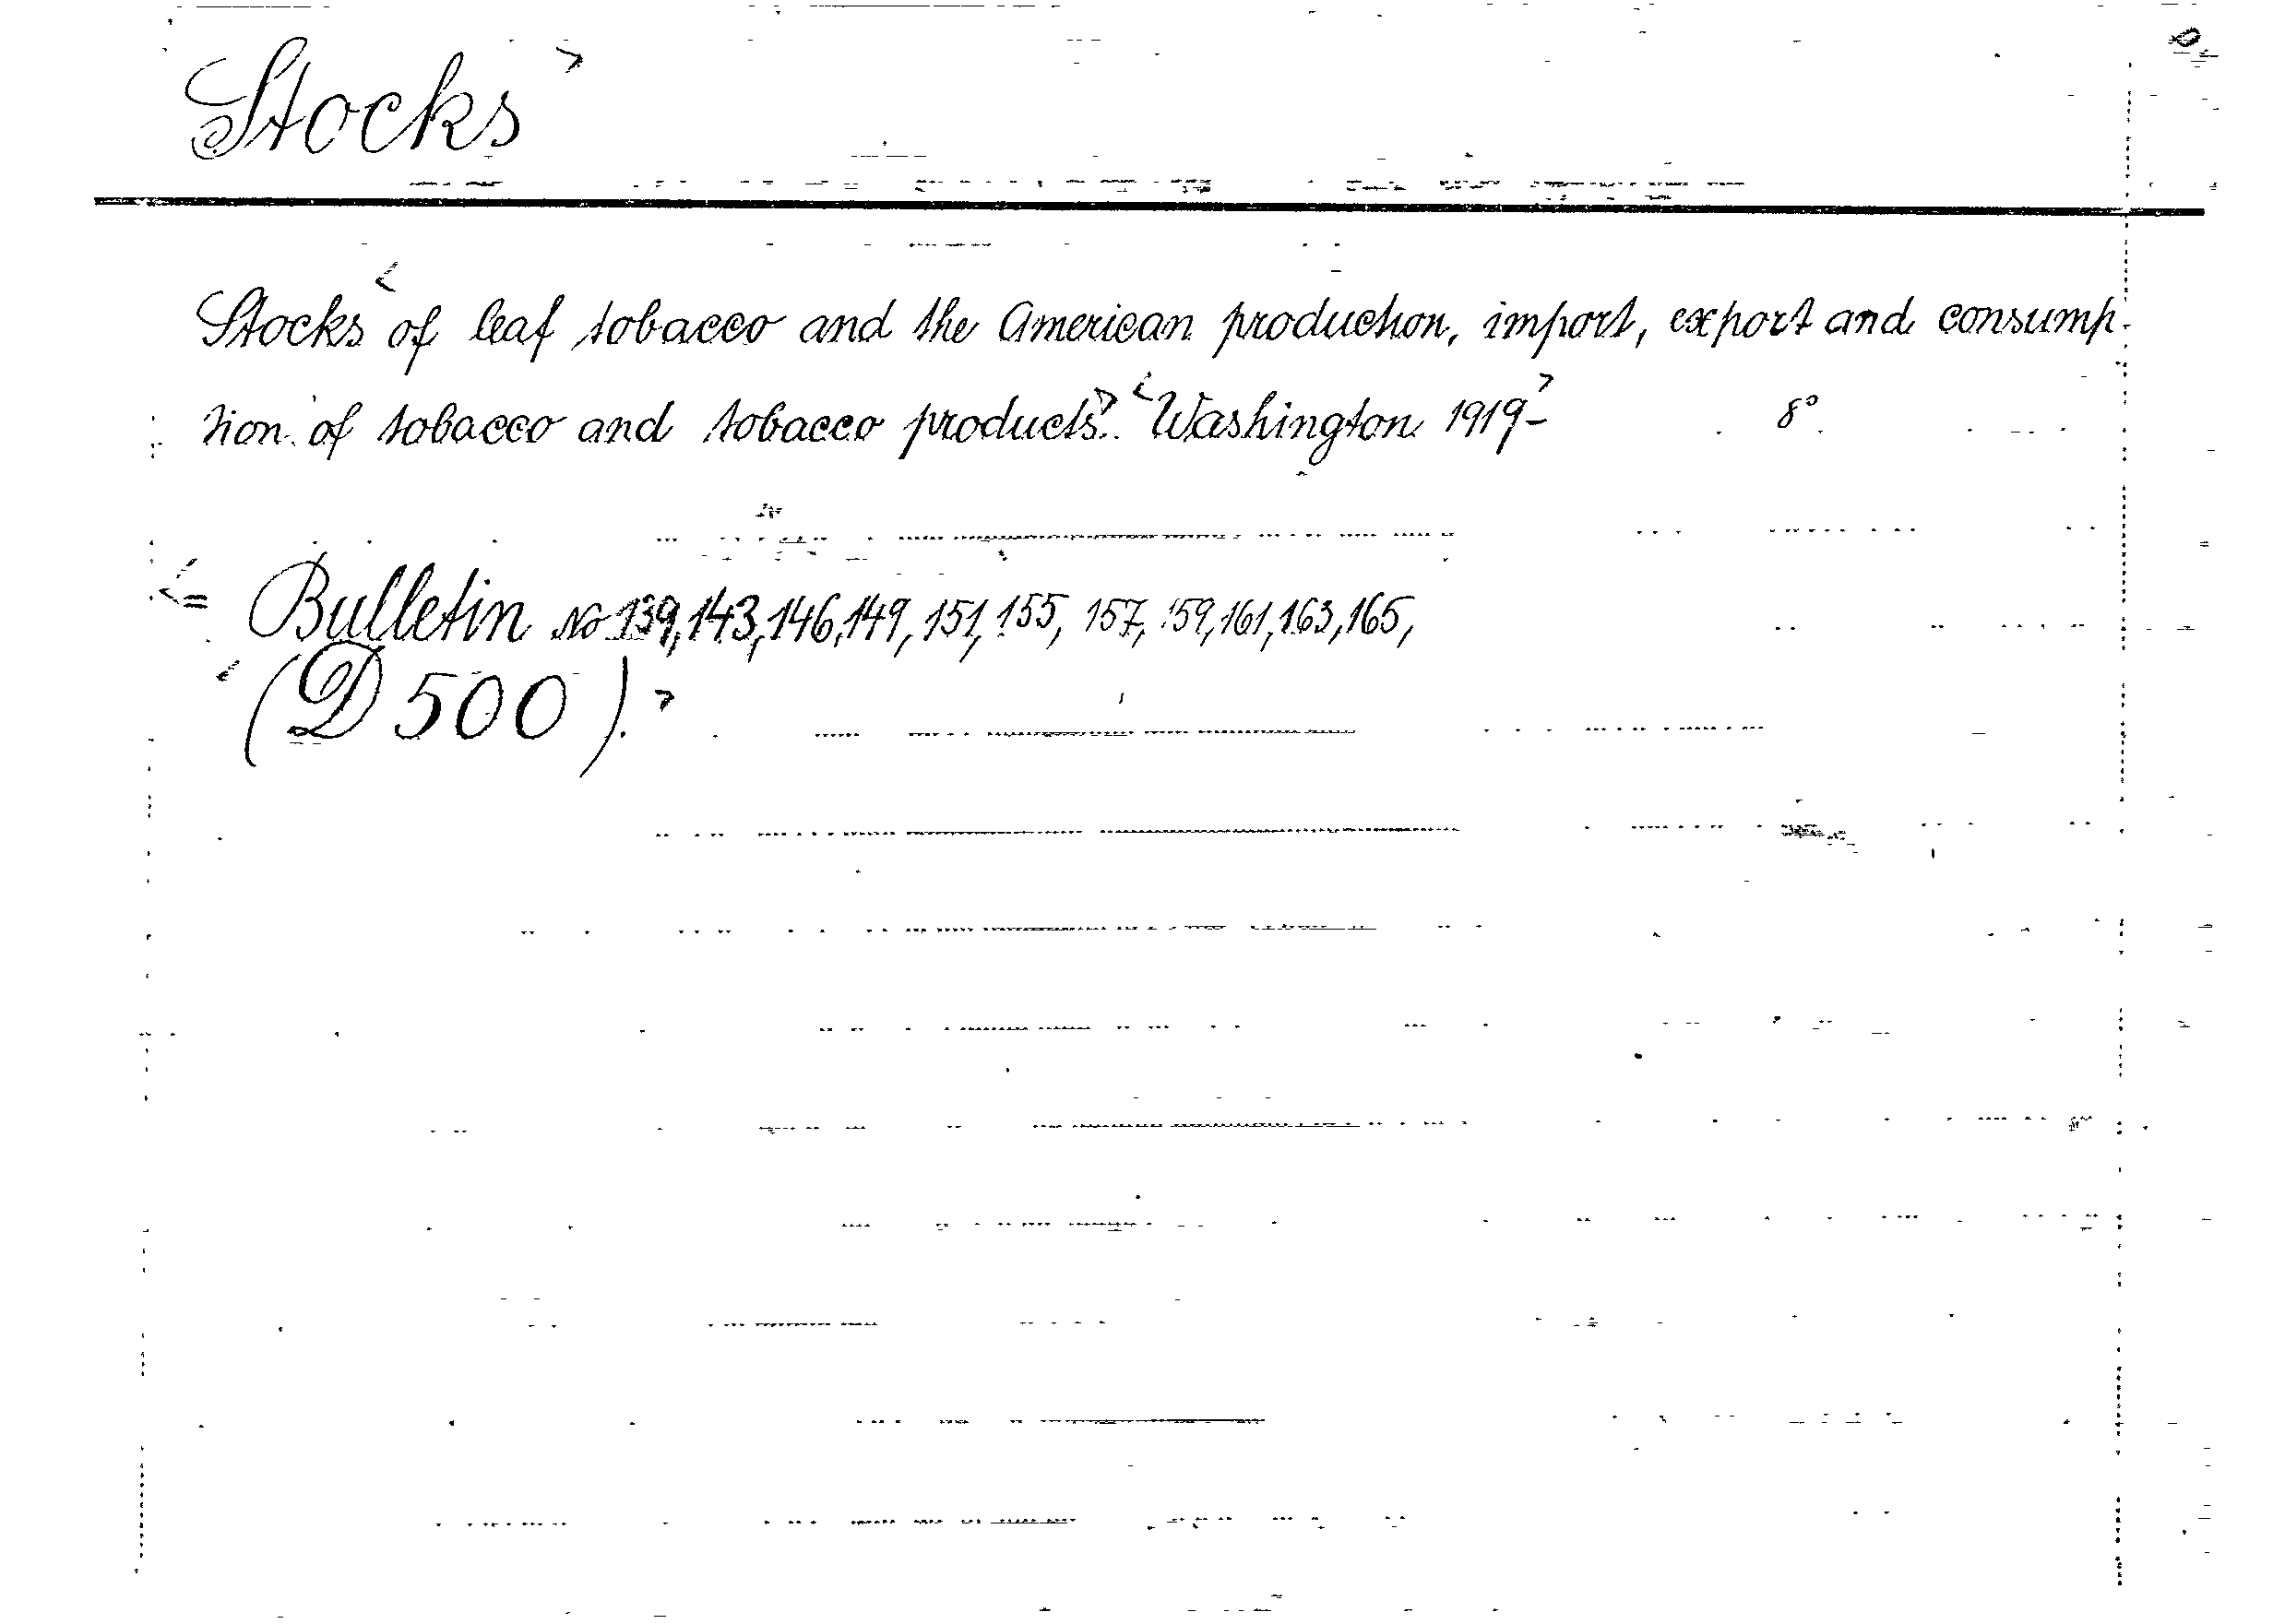 Stocks
Stocks of leaf tobacco and the American production, import, export and consump-
tion of tobacco and tobacco products. Washington 1919- 8°
= Bulletin No 139, 143, 146, 149, 151, 155, 157, 159, 161, 163, 165,
(D 500).